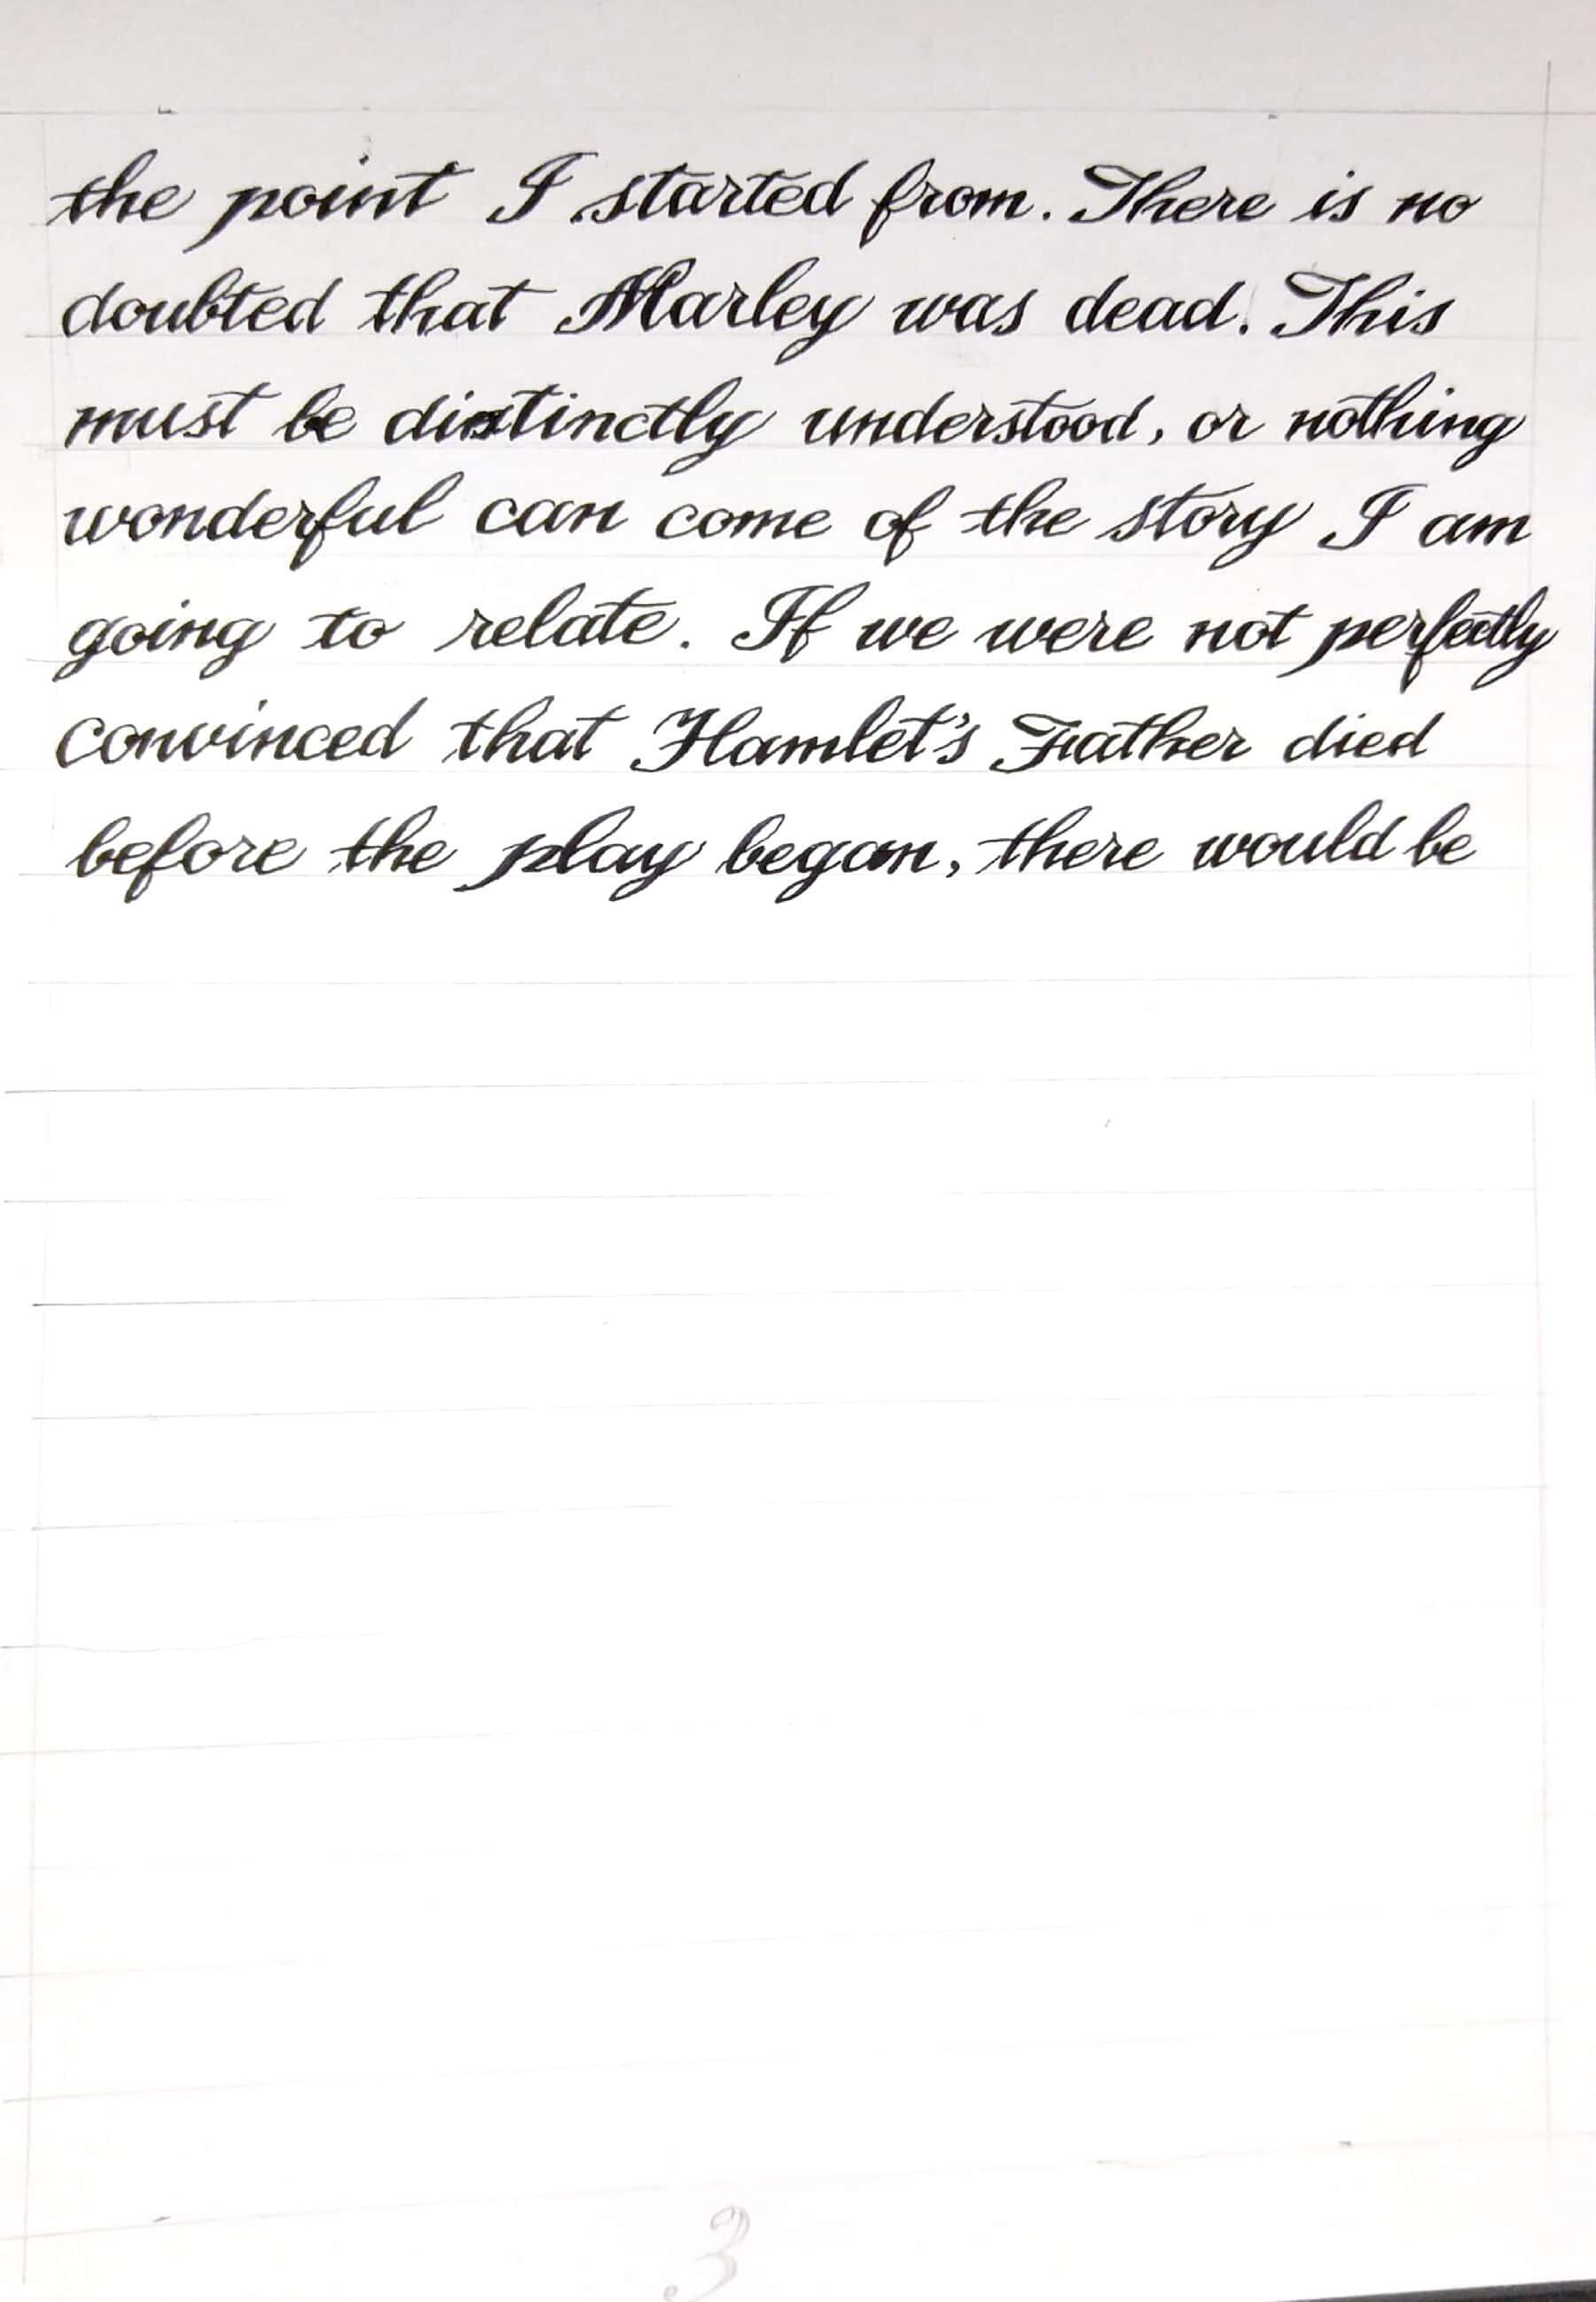 the point I started from. There is no
doubted that Marley was dead. This
must be distinctly understood, or nothing
wonderful can come of the story I am
going to relate. If we were not perfectly
convinced that Hamlet's Father died
before the play began, there would be
3